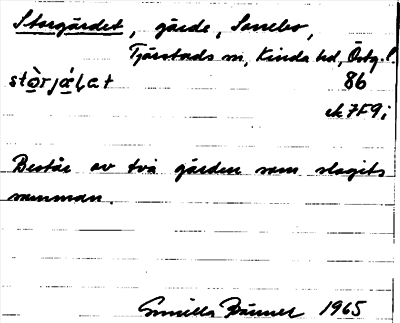 Storgärdet, gärde, Sonebo,
Tjärstads sn, Kinda hd, Östg. l.
stòrjálat 86
ek 7F9i
Består av två gärden som slagits
samman.
Gunilla Bänner 1965